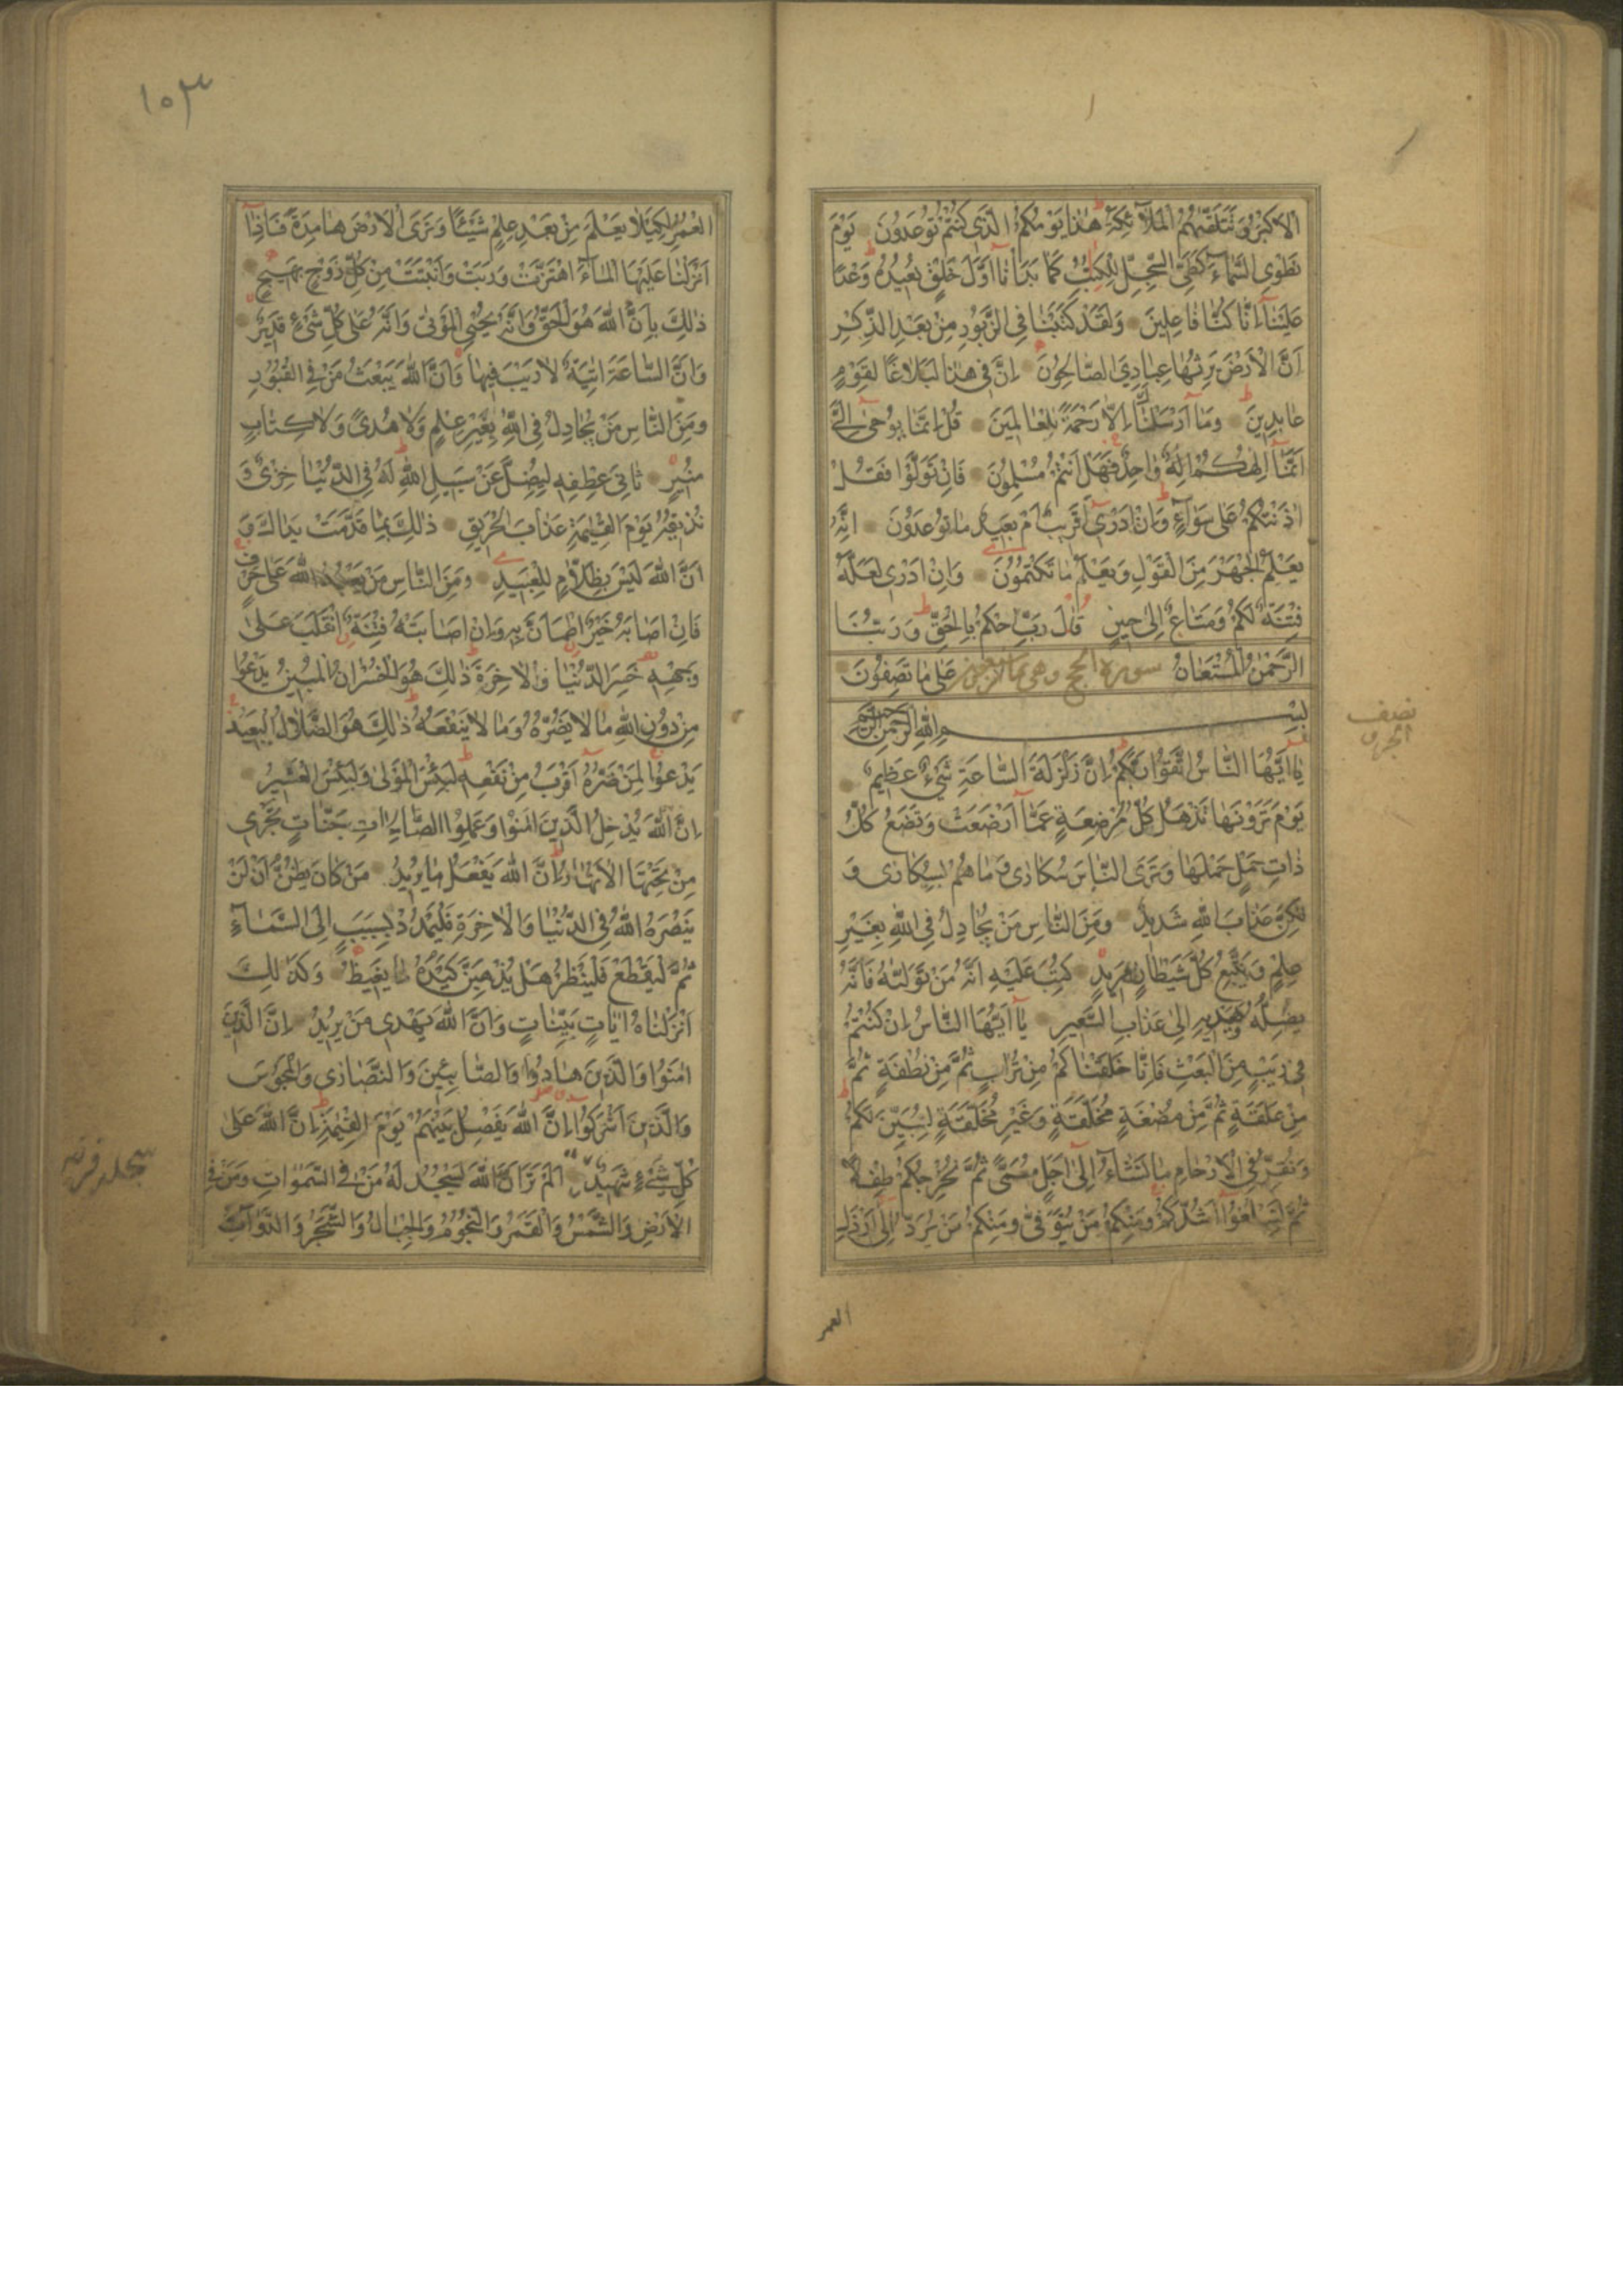 الاكبر وتتلقيهم الملآئكة هذا يومكم الذي كنتم توعدون يوم
نطوي السمآء كطي السجل للكتب كما بدأنا اول خلق نعيده وعدا
علينا انا كنا فاعلين ولقد كتبنا في الزبور من بعد الذكر
ان الارض يرثها عبادي الصالحون ان في هذا لبلاغا لقوم
عابدين وما ارسلناك الا رحمة للعالمين قل انما يوحى الي
انما الهكم اله واحد فهل انتم مسلمون فان تولوا فقل
اذنتكم على سوآء وان ادري اقريب ام بعيد ما توعدون انه
يعلم الجهر من القول ويعلم ما تكتمون وان ادري لعله
فتنة لكم ومتاع الى حين قال رب احكم بالحق وربنا
الرحمن المستعان سورة الحج وهي على ما تصفون
بسم الله الرحمن الرحيم
نصف
الجزو
يا ايها الناس اتقوا ربكم ان زلزلة الساعة شيء عظيم
يوم ترونها تذهل كل مرضعة عمآ ارضعت وتضع كل
ذات حمل حملها وترى الناس سكارى وما هم بسكارى و
لكن عذاب الله شديد ومن الناس من يجادل في الله بغير
علم ويتبع كل شيطان مريد كتب عليه انه من تولاه فانه
يضله ويهديه الى عذاب السعير يا ايها الناس ان كنتم
في ريب من البعث فانا خلقناكم من تراب ثم من نطفة ثم
من علقة ثم من مضغة مخلقة وغير مخلقة لنبين لكم
ونقر في الارحام ما نشآء الى اجل مسمى ثم نخرجكم طفلا
ثم لتبلغوا اشدكم ومنكم من يتوفى ومنكم من يرد الى ارذل
العمر
١٠٣
العمر لكيلا يعلم من بعد علم شيئا وترى الارض هامدة فاذآ
انزلنا عليها المآء اهتزت وربت وانبتت من كل زوج بهيج
ذلك بان الله هو الحق وانه يحيي الموتى وانه على كل شيء قدير
وان الساعة اتية لا ريب فيها وان الله يبعث من في القبور
ومن الناس من يجادل في الله بغير علم ولا هدى ولا كتاب
منير ثاني عطفه ليضل عن سبيل الله له في الدنيا خزي و
نذيقه يوم القيمة عذاب الحريق ذلك بما قدمت يداك و
ان الله ليس بظلام للعبيد ومن الناس من يعبد الله على حرف
فان اصابه خير اطمأن به وان اصابته فتنة انقلب على
وجهه خسر الدنيا والاخرة ذلك هو الخسران المبين يدعوا
من دون الله ما لا يضره وما لا ينفعه ذلك هو الضلال البعيد
يدعوا لمن ضره اقرب من نفعه لبئس المولى ولبئس العشير
ان الله يدخل الذين امنوا وعملوا الصالحات جنات تجري
من تحتها الانهار ان الله يفعل ما يريد من كان يظن ان لن
ينصره الله في الدنيا والاخرة فليمدد بسبب الى السمآء
ثم ليقطع فلينظر هل يذهبن كيده ما يغيظ وكذلك
انزلناه ايات بينات وان الله يهدي من يريد ان الذين
امنوا والذين هادوا والصابئين والنصارى والمجوس
والذين اشركوا ان الله يفصل بينهم يوم القيمة ان الله على
كل شيء شهيد الم تر ان الله يسجد له من في السموات ومن في
الارض والشمس والقمر والنجوم والجبال والشجر والدوآب